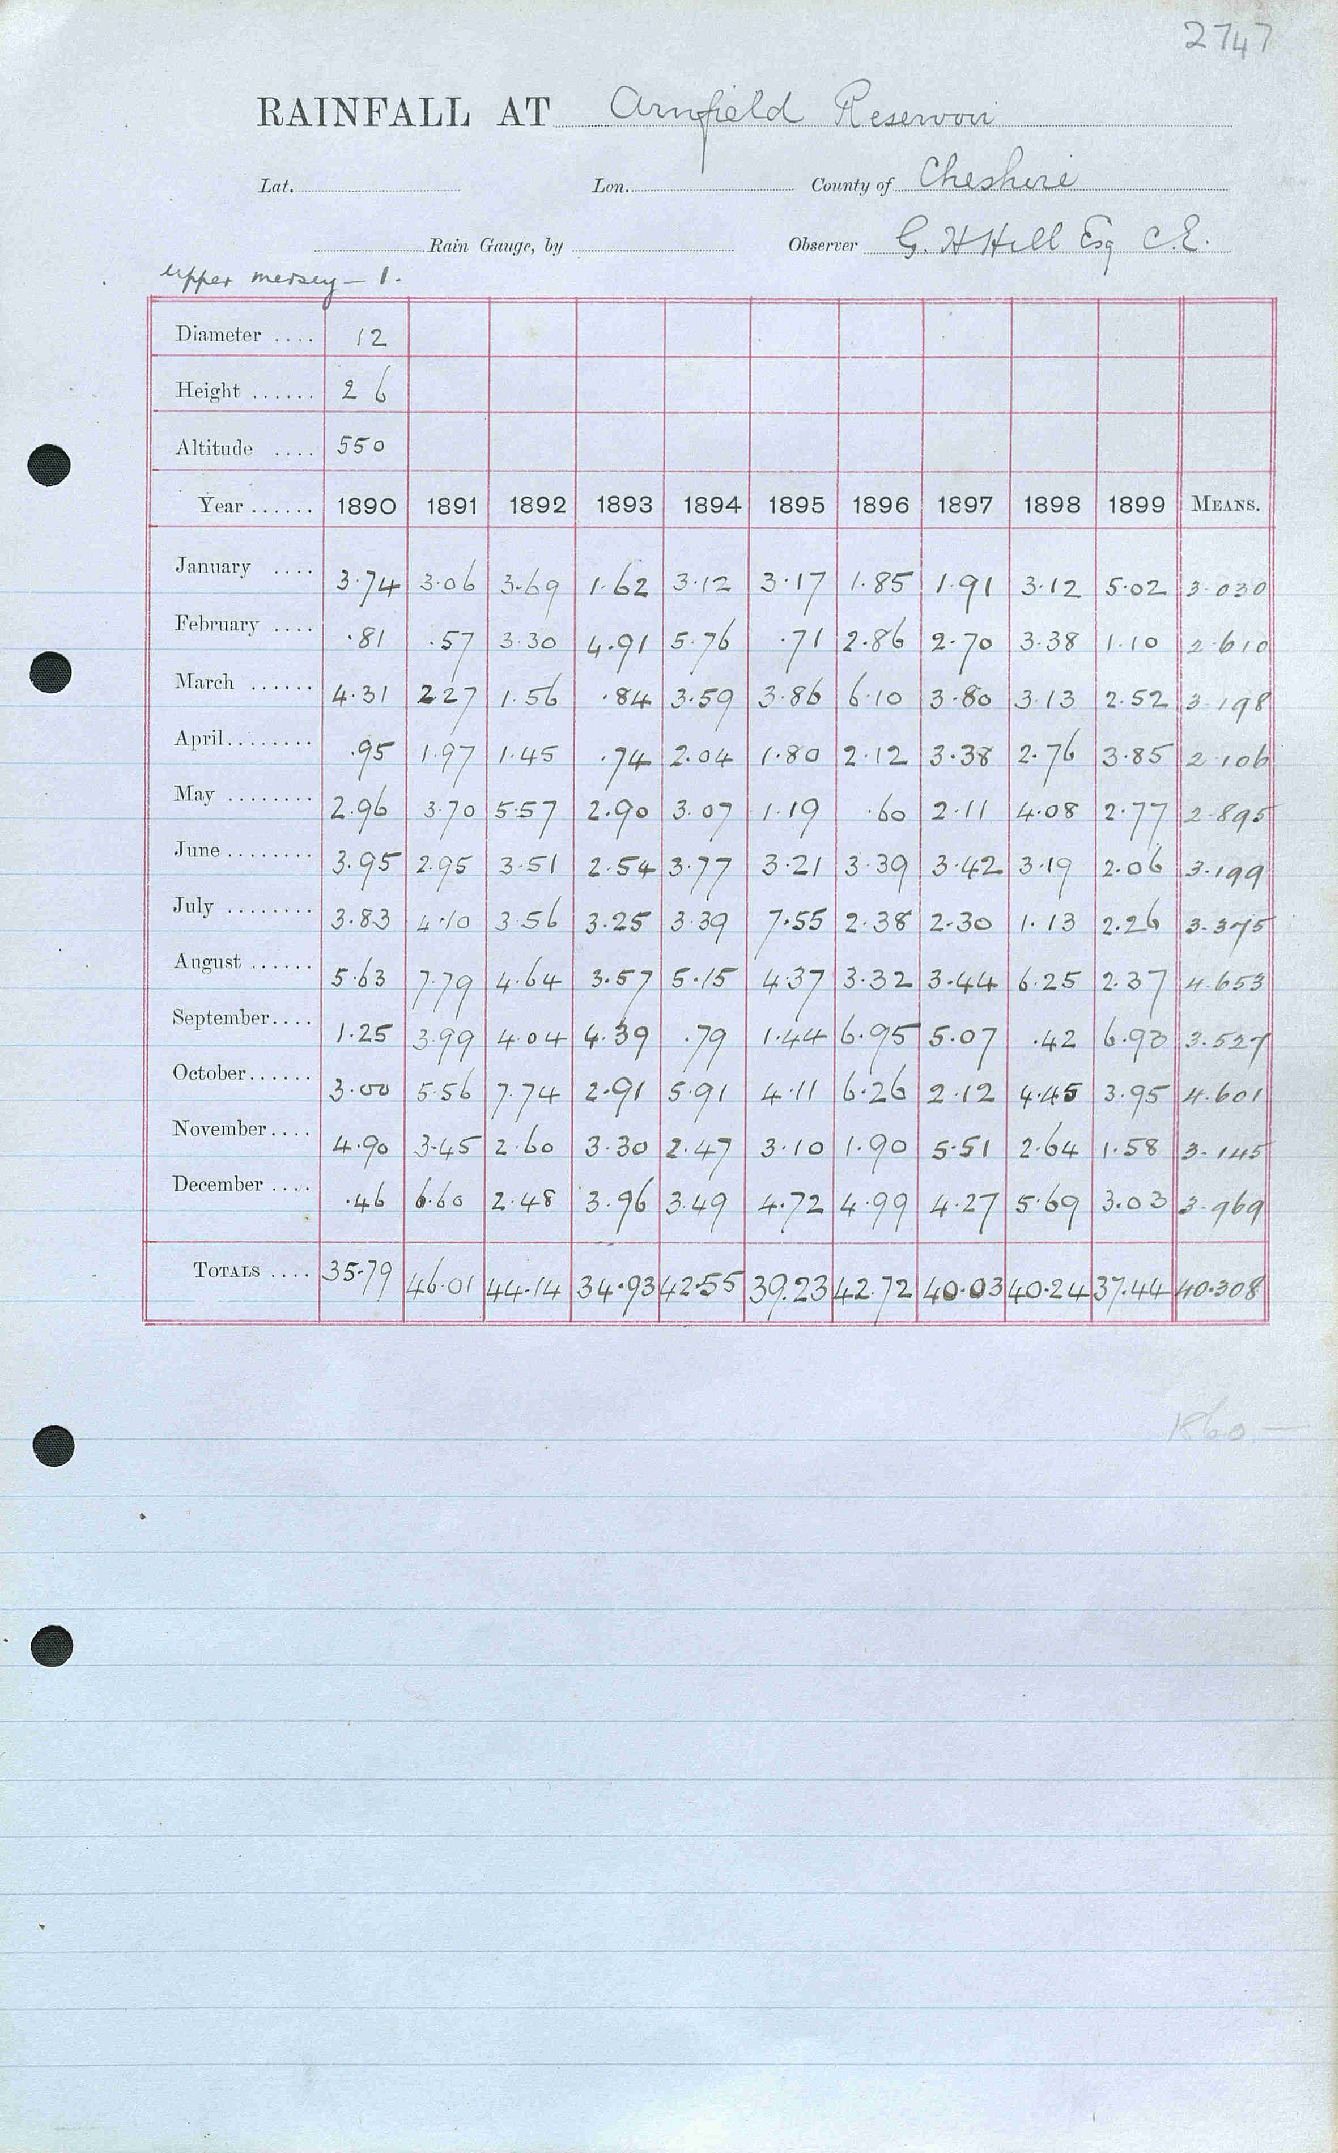 2747
RAINFALL AT Arnfield Reservoir
Lat. Lon. County of Cheshire
Rain Gauge, by Observer G. H Hill Esq C.E.
Upper Mersey - 1.
Diameter .... 12
Height ...... 2 6
Altitude .... 550
Year ...... 1890 1891 1892 1893 1894 1895 1896 1897 1898 1899 MEANS.
January .... 3.74 3.06 3.69 1.62 3.12 3.17 1.85 1.91 3.12 5.02 3.030
February .... .81 .57 3.30 4.91 5.76 .71 2.86 2.70 3.38 1.10 2.610
March ...... 4.31 2.27 1.56 .84 3.59 3.86 6.10 3.80 3.13 2.52 3.198
April........ .95 1.97 1.45 .74 2.04 1.80 2.12 3.38 2.76 3.85 2.106
May ........ 2.96 3.70 5.57 2.90 3.07 1.19 .60 2.11 4.08 2.77 2.895
June ........ 3.95 2.95 3.51 2.54 3.77 3.21 3.39 3.42 3.19 2.06 3.199
July ........ 3.83 4.10 3.56 3.25 3.39 7.55 2.38 2.30 1.13 2.26 3.375
August ...... 5.63 7.79 4.64 3.57 5.15 4.37 3.32 3.44 6.25 2.37 4.653
September.... 1.25 3.99 4.04 4.39 .79 1.44 6.95 5.07 .42 6.93 3.527
October...... 3.00 5.56 7.74 2.91 5.91 4.11 6.26 2.12 4.45 3.95 4.601
November.... 4.90 3.45 2.60 3.30 2.47 3.10 1.90 5.51 2.64 1.58 3.145
December .... .46 6.60 2.48 3.96 3.49 4.72 4.99 4.27 5.69 3.03 3.969
TOTALS .... 35.79 46.01 44.14 34.93 42.55 39.23 42.72 40.03 40.24 37.44 40.308
1860 —